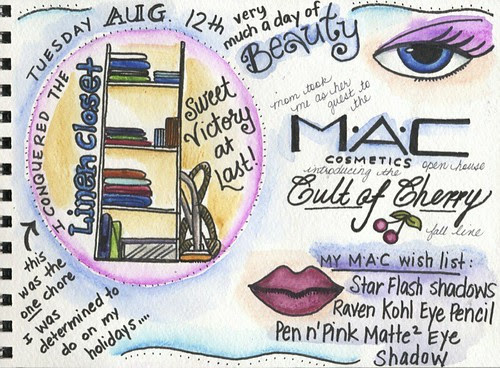 TUESDAY AUG. 12th
very
much a day of
Beauty
I CONQUERED THE
Linen Closet
Sweet
Victory
at
Last!
this
was the
one chore
I was
determined to
do on my
holidays....
mom took
me as her
guest to
the
M·A·C
COSMETICS
open house
introducing the
Cult of Cherry
fall line
MY M·A·C wish list:
Star Flash shadows
Raven Kohl Eye Pencil
Pen n' Pink Matte² Eye
Shadow